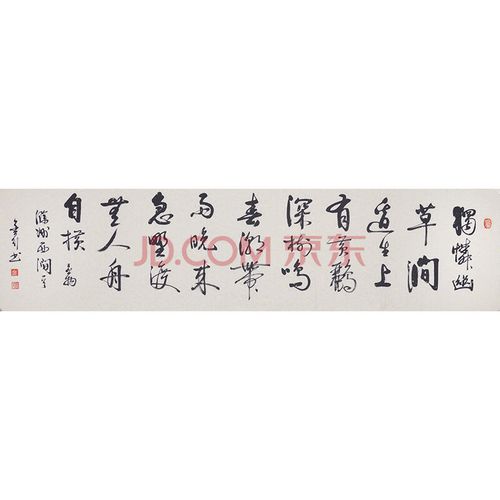 獨憐幽
草澗
邊生上
有黃鸝
深樹鳴
春潮帶
雨晚來
急野渡
無人舟
自横
滁州西澗
书
JD.COM 京东